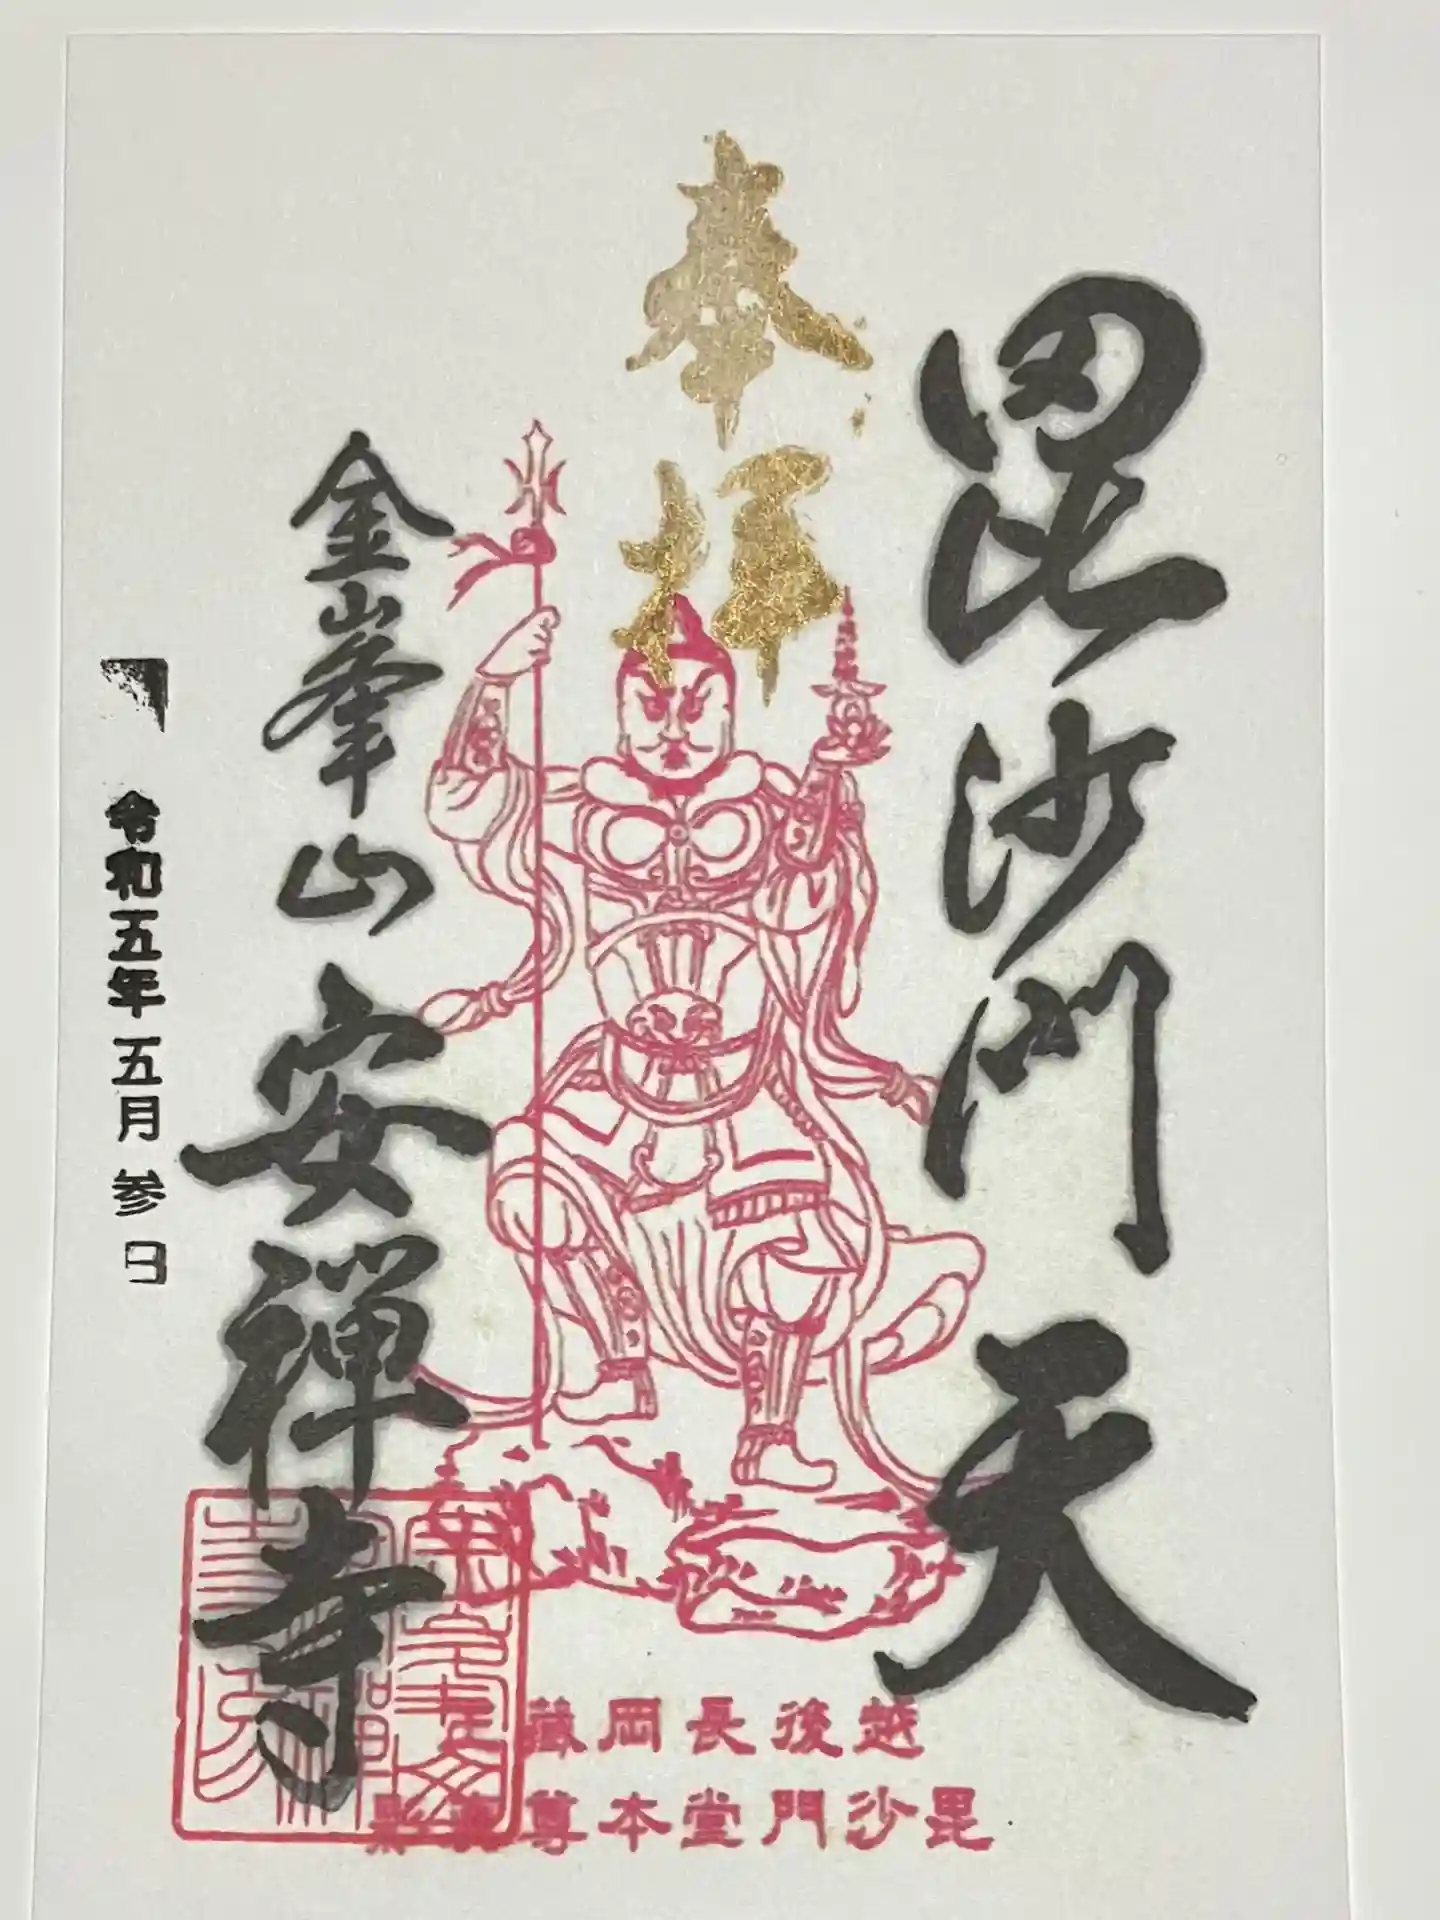 毘沙門天
奉拝
金峯山 安禅寺
令和五年五月参日
越後長岡藏王
毘沙門堂本尊